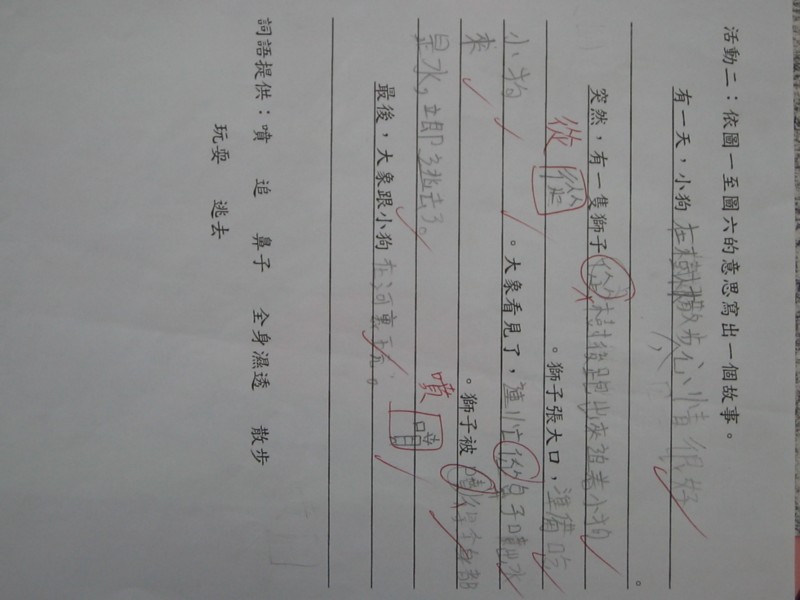 活動二：依圖一至圖六的意思寫出一個故事。
有一天，小狗在樹林散步心情很好
。
突然，有一隻獅子從樹後跑出來追着小狗
從 從 。獅子張大口，準備吃
小狗 。大象看見了，連忙從鼻子噴出水
來 。獅子被噴得全身都
是水，立即逃去了。 噴 噴
最後，大象跟小狗在河裏玩。
詞語提供：噴 追 鼻子 全身濕透 散步
玩耍 逃去